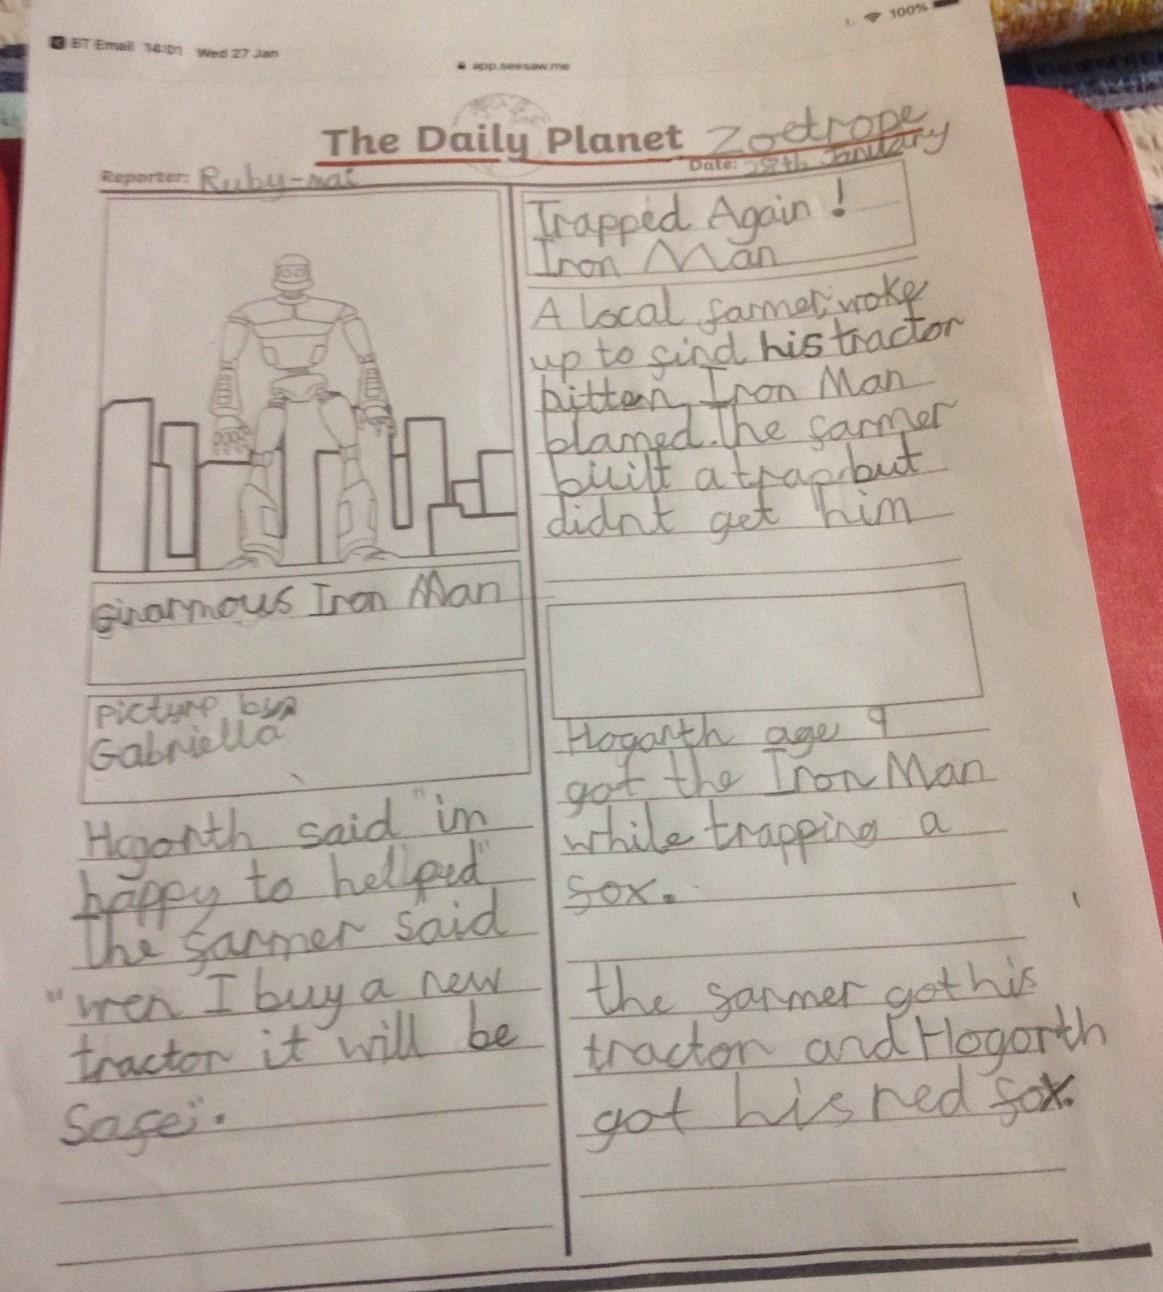 BT Email 14:01 Wed 27 Jan
100%
app.seesaw.me
The Daily Planet Zoetrope
Reporter: Ruby-mai
Date: 28th January
Ginarmous Iron Man
picture by
Gabriella
Hogorth said "im
happy to hellped"
the farmer said
"wen I buy a new
tractor it will be
safe".
Trapped Again !
Iron Man
A local farmer, woke
up to find his tractor
bitten, Iron Man
blamed. The farmer
built a trap but
didnt get him
Hogarth age 9
got the Iron Man
while trapping a
fox.
the farmer got his
tractor and Hogorth
got his red fox.